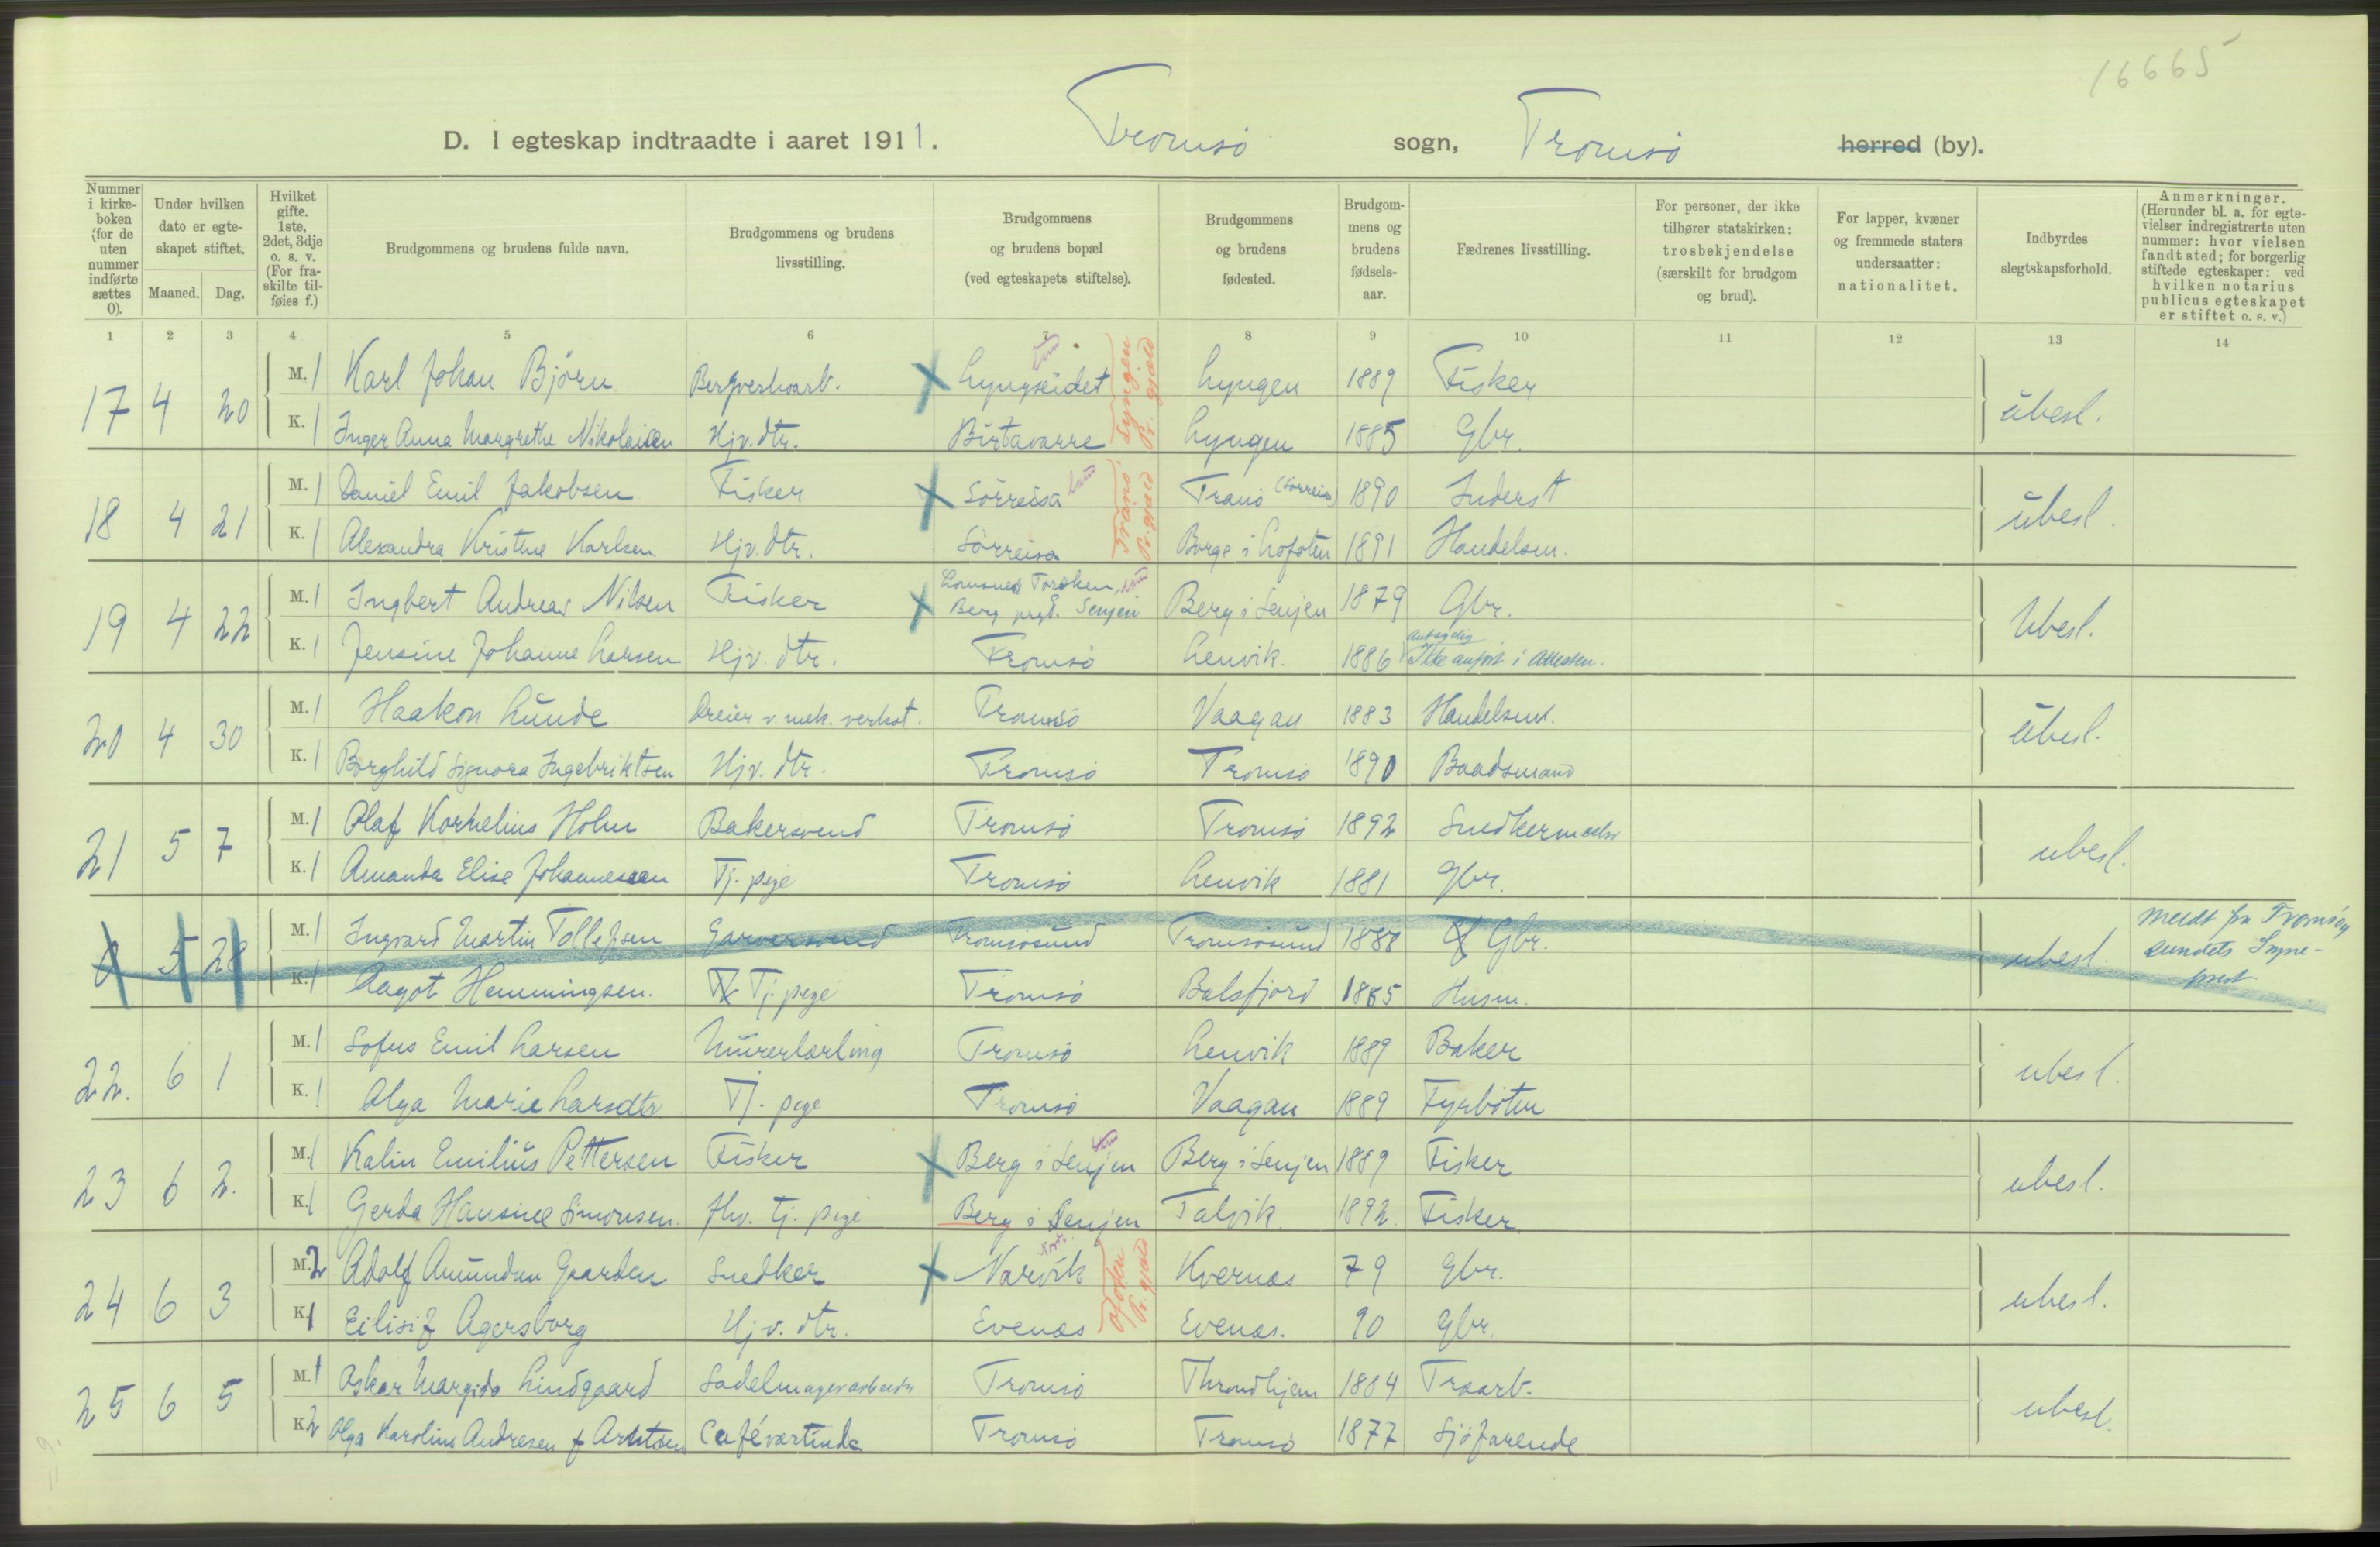 16665
D. I egteskap indtraadte i aaret 1911. Tromsö sogn, Tromsö herred (by).
Nummer i kirkeboken (for de uten nummer indførte sættes 0). Under hvilken dato er egteskapet stiftet. Maaned. Dag. Hvilket gifte. 1ste, 2det, 3dje o. s. v. (For fraskilte tilføies f.) Brudgommens og brudens fulde navn. Brudgommens og brudens livsstilling. Brudgommens og brudens bopæl (ved egteskapets stiftelse). Brudgommens og brudens fødested. Brudgommens og brudens fødselsaar. Fædrenes livsstilling. For personer, der ikke tilhører statskirken: trosbekjendelse (særskilt for brudgom og brud). For lapper, kvæner og fremmede staters undersaatter: nationalitet. Indbyrdes slegtskapsforhold. Anmerkninger. (Herunder bl. a. for egtevielser indregistrerte uten nummer: hvor vielsen fandt sted; for borgerlig stiftede egteskaper: ved hvilken notarius publicus egteskapet er stiftet o. s. v.)
1 2 3 4 5 6 7 8 9 10 11 12 13 14
17 4 20 M. 1 Karl Johan Björn Bergverksarb. Lyngseidet Lyngen 1889 Fisker ubesl.
K. 1 Inger Anna Margrethe Nikolaisen Hjv. dtr. Birtavarre Lyngen 1885 Gbr.
Lyngen Pr. gjeld
18 4 21 M. 1 Daniel Emil Jakobsen Fisker Sörreisa Tranö (Sörreisa) 1890 Inderst ubesl.
K. 1 Alexandra Kristine Karlsen Hjv. dtr. Sörreisa Borge i Lofoten 1891 Handelsm.
Tranö Pr. gjeld
19 4 22 M. 1 Ingbert Andreas Nilsen Fisker Torsken, Berg prgd. Senjen Berg i Senjen 1879 Gbr. Ubesl.
K. 1 Jensine Johanne Larsen Hjv. dtr. Tromsö Lenvik. 1886 Ikke anfört i Attesten.
20 4 30 M. 1 Haakon Lunde Dreier v. mek. verkst. Tromsö Vaagan 1883 Handelsm. ubesl.
K. 1 Borghild Signora Ingebriktsen Hjv. dtr. Tromsö Tromsö 1890 Baadsmand
21 5 7 M. 1 Olaf Kornelius Holm Bakersvend Tromsö Tromsö 1892 Snedkermester ubesl.
K. 1 Amanda Elise Johannessen Tj. pige Tromsö Lenvik 1881 Gbr.
0 5 28 M. 1 Ingvard Martin Tollefsen Garversvend Tromsösund Tromsösund 1888 Gbr. ubesl. Meldt fra Tromsöysundets Sogneprest
K. 1 Aagot Hemmingsen. Tj. pige Tromsö Balsfjord 1885 Husm.
22. 6 1 M. 1 Sofus Emil Larsen Murerlærling Tromsö Lenvik 1889 Baker ubesl.
K. 1 Olga Marie Larsdtr Tj. pige Tromsö Vaagan 1889 Fyrböter
23 6 2. M. 1 Kalin Emilius Pettersen Fisker Berg i Senjen Berg i Senjen 1889 Fisker ubesl.
K. 1 Gerda Hansine Simonsen. fhv. tj. pige Berg i Senjen Talvik. 1892. Fisker.
24 6 3 M. 2 Adolf Amundsen Gaarden Snedker Narvik Kvernæs 79 Gbr. ubesl.
K. 1 Eilisif Agersborg Hjv. dtr. Evenæs Evenæs. 90 Gbr.
Ofoten Pr. gjeld
25 6 5 M. 1 Oskar Margido Lindgaard Sadelmagerarbeider Tromsö Throndhjem 1884 Traarb. ubesl.
K. 2 Olga Karoline Andresen f Arntsen Cafévertinde Tromsö Tromsö 1877 Sjöfarende